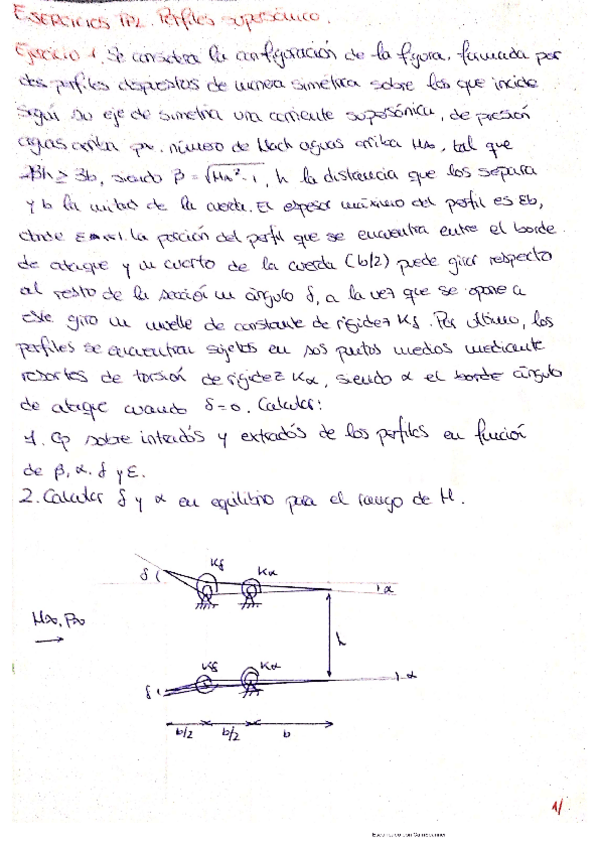 EJERCICIOS TP2. Perfiles supersónico.
Ejercicio 1. Se considera la configuración de la figura, formada por
dos perfiles dispuestos de manera simétrica sobre los que incide
según su eje de simetría una corriente supersónica, de presión
aguas arriba p∞, número de Mach aguas arriba M∞, tal que
βh ≥ 3b, siendo β = √(M∞²-1), h la distancia que los separa
y b la mitad de la cuerda. El espesor máximo del perfil es εb,
donde ε<<1. La porción del perfil que se encuentra entre el borde
de ataque y un cuarto de la cuerda (b/2) puede girar respecto
al resto de la sección un ángulo δ, a la vez que se opone a
este giro un muelle de constante de rigidez Kδ. Por último, los
perfiles se encuentran sujetos en sus puntos medios mediante
resortes de torsión de rigidez Kα, siendo α el borde ángulo
de ataque cuando δ=0. Calcular:
1. Cp sobre intradós y extradós de los perfiles en función
de β, α, δ y ε.
2. Calcular δ y α en equilibrio para el rango de M.
δ
Kδ
Kα
α
M∞, P∞
h
Kδ
Kα
α
δ
b/2
b/2
b
1/
Escaneado con CamScanner